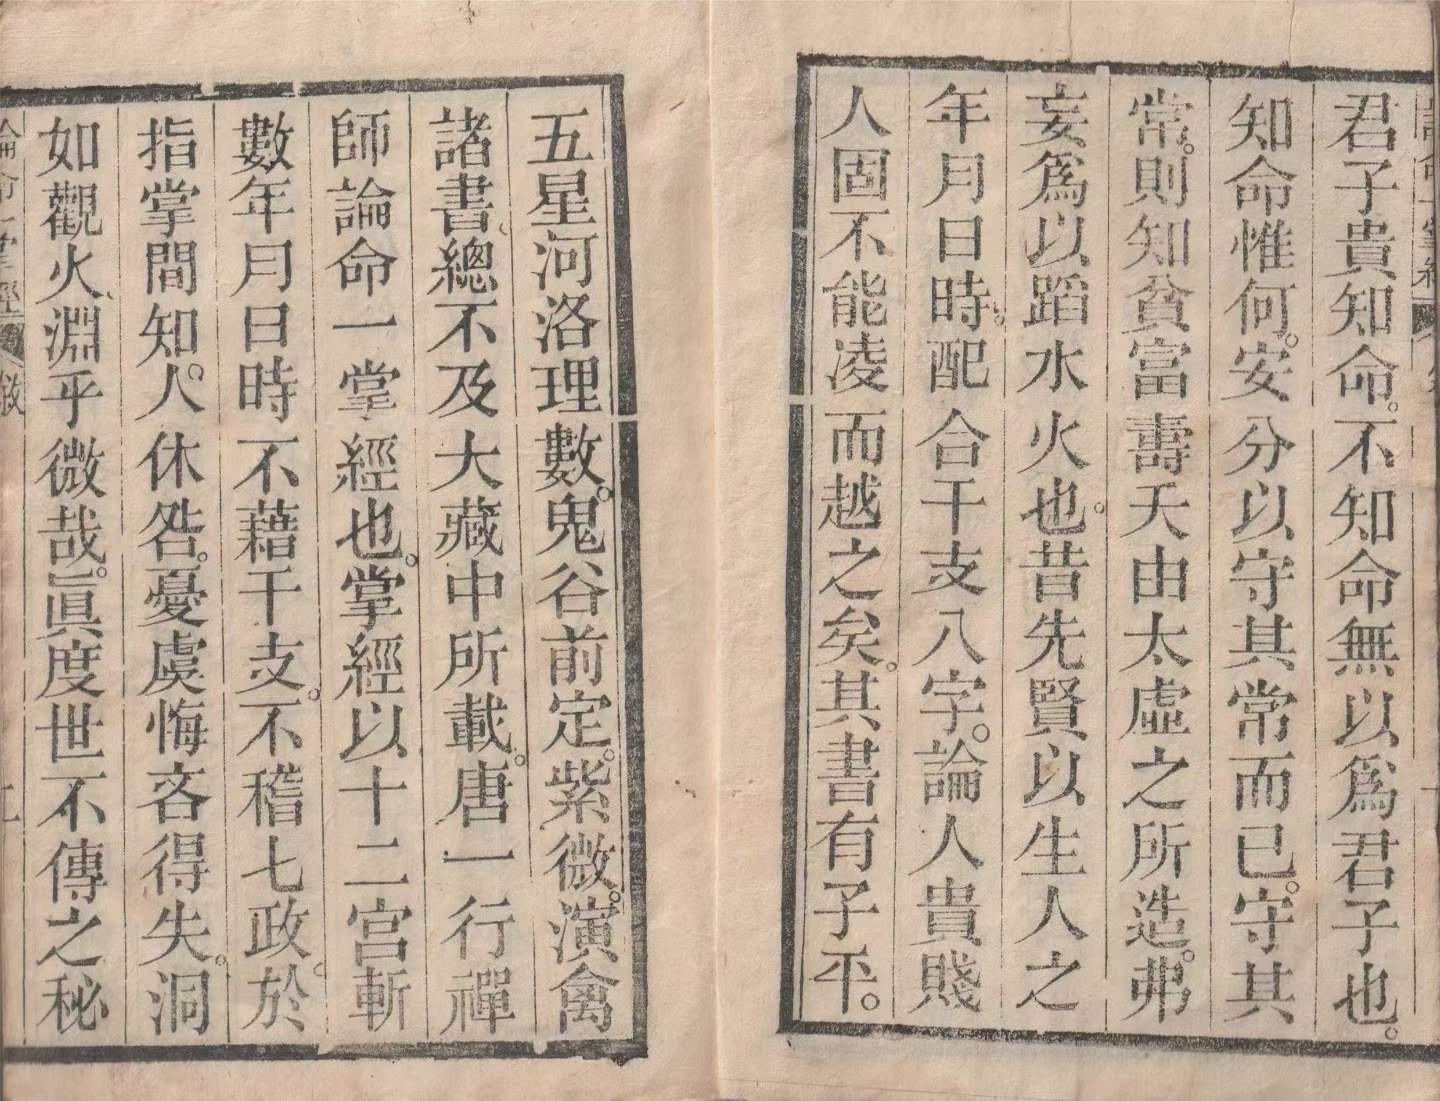 君子貴知命。不知命無以爲君子也。
知命惟何。安分以守其常而已。守其
常。則知貧富壽夭由太虛之所造。弗
妄爲以蹈水火也。昔先賢以生人之
年月日時。配合干支八字。論人貴賤
人固不能凌而越之矣。其書有子平。
五星河洛理數。鬼谷前定。紫微。演禽
諸書、總不及大藏中所載。唐一行禪
師論命一掌經也。掌經以十二宮斬
數年月日時不藉干支。不稽七政。於
指掌間知。人休咎。憂虞悔吝得失。洞
如觀火、淵乎微哉。眞度世不傳之秘
論命一掌經
敘